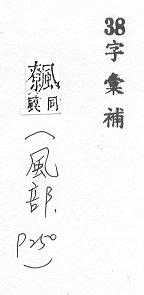 38字彙補
同
(風部, P250)